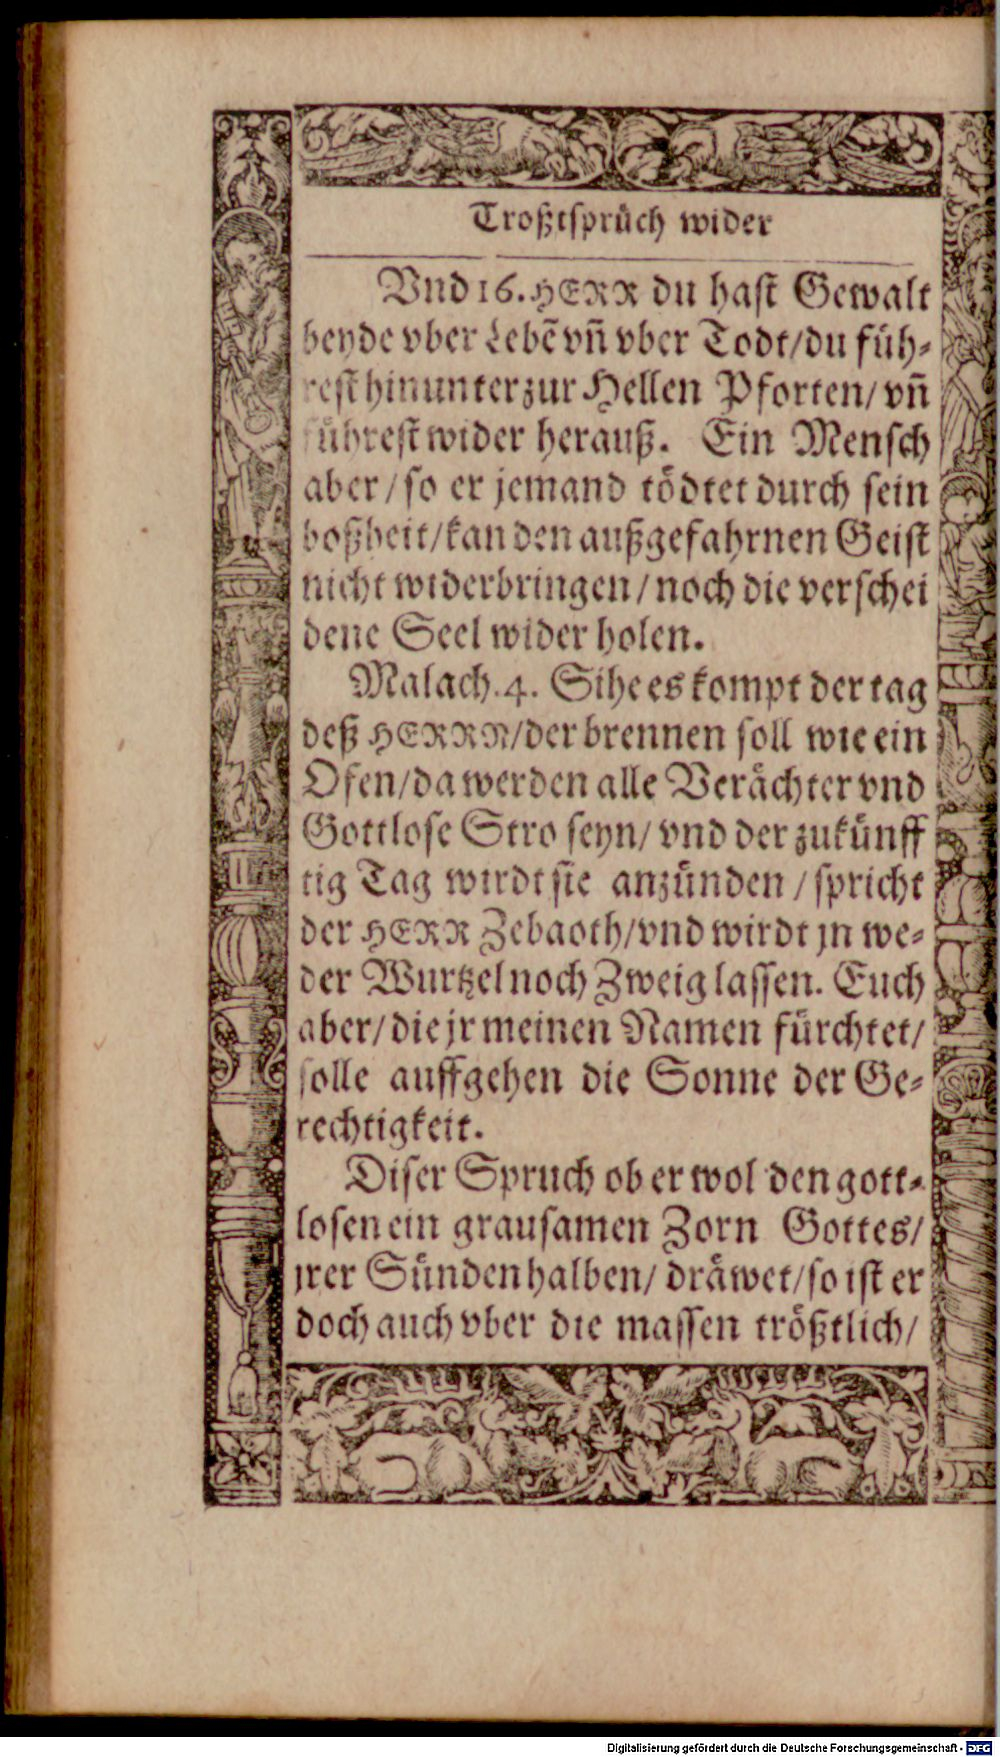 Troßtsprüch wider
Vnd 16. HERR du hast Gewalt
beyde vber Lebē vn̄ vber Todt/du füh-
rest hinunter zur Hellen Pforten/ vn̄
führest wider herauß. Ein Mensch
aber/ so er jemand tödtet durch sein
boßheit/kan den außgefahrnen Geist
nicht widerbringen/ noch die verschei
dene Seel wider holen.
Malach. 4. Sihe es kompt der tag
deß HERRN/der brennen soll wie ein
Ofen/da werden alle Verächter vnd
Gottlose Stro seyn/ vnd der zukünff
tig Tag wirdt sie anzünden / spricht
der HERR Zebaoth/vnd wirdt jn we-
der Wurtzel noch Zweig lassen. Euch
aber/ die jr meinen Namen fürchtet/
solle auffgehen die Sonne der Ge-
rechtigkeit.
Diser Spruch ob er wol den gott-
losen ein grausamen Zorn Gottes/
jrer Sünden halben/ dräwet/so ist er
doch auch vber die massen trößtlich/
Digitalisierung gefördert durch die Deutsche Forschungsgemeinschaft - DFG